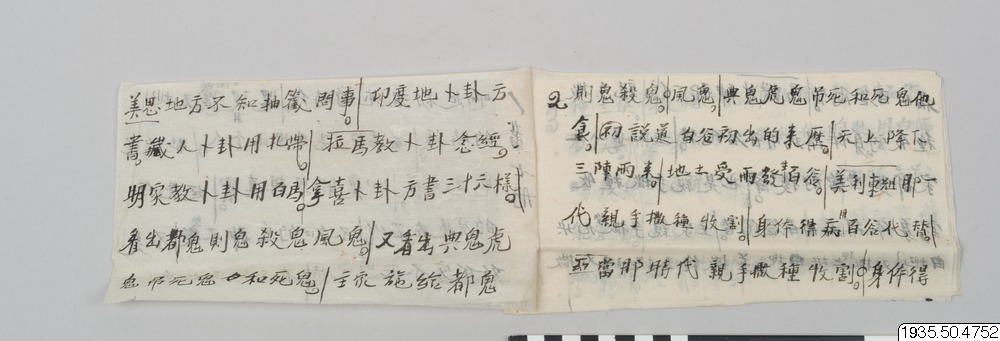 美思地方不知抽籤問事。印度地卜卦方
書。藏人卜卦用扎帶。拉馬教卜卦念經。
明家教卜卦用白馬。拿喜卜卦方書三十六樣。
看出都鬼則鬼殺鬼風鬼。又看出典鬼虎
鬼吊死鬼和死鬼。主家施給都鬼
2 則鬼殺鬼。風鬼。典鬼虎鬼吊死和死鬼他
食。初說道百谷初出的來歷。天上降下
三陣雨來。地土受雨發百谷。美利車姐那一
代親手撒種收割。身作得病百谷代替。
當那時代親手撒種收割。身作得
1935.50.4752